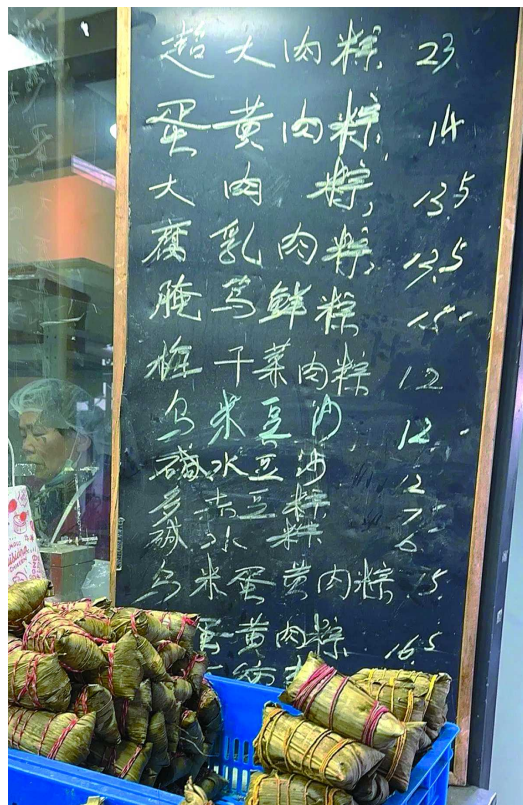 超大肉粽 23
蛋黄肉粽 14
大肉粽 13.5
腐乳肉粽 13.5
腌笃鲜粽 15-
梅干菜肉粽 12
乌米豆沙 12.-
碱水豆沙 12
赤豆粽 7-
碱水粽 6-
乌米蛋黄肉粽 15.
蛋黄肉粽 16.5